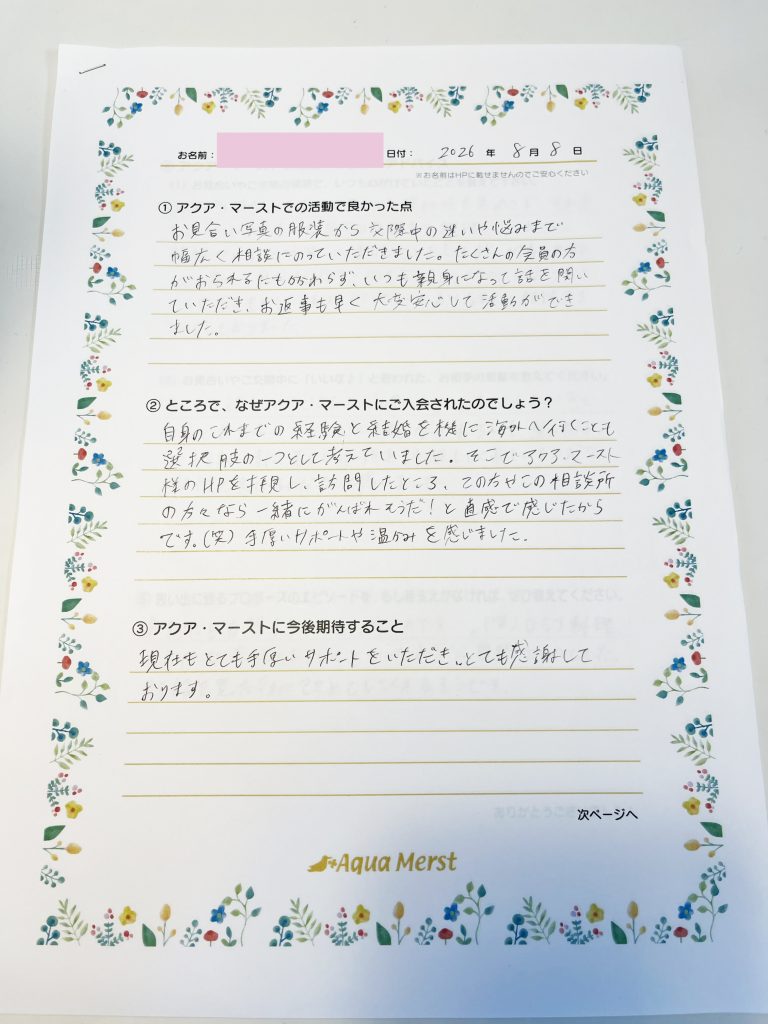 お名前： 日付： 2026 年 8 月 8 日
※お名前はHPに載せませんのでご安心ください
① アクア・マーストでの活動で良かった点
お見合い写真の服装から交際中の迷いや悩みまで
幅広く相談にのっていただきました。たくさんの会員の方
がおられるにもかかわらず、いつも親身になって話を聞い
ていただき、お返事も早く大変安心して活動ができ
ました。
② ところで、なぜアクア・マーストにご入会されたのでしょう？
自身のこれまでの経験と結婚を機に海外へ行くことも
選択肢の一つとして考えていました。そこでアクア・マースト
様のHPを拝見し、訪問したところ、この方やこの相談所
の方々なら一緒にがんばれそうだ！と直感で感じたから
です。(笑) 手厚いサポートや温かみを感じました。
③ アクア・マーストに今後期待すること
現在もとても手厚いサポートをいただき、とても感謝して
おります。
次ページへ
Aqua Merst